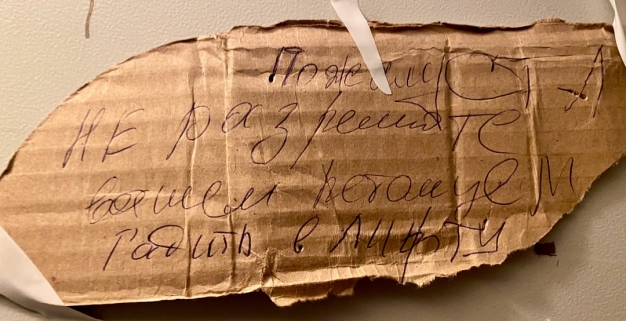 ПожалуСТА
НЕ разрешайте
вашем петомцеМ
гадить в лифту